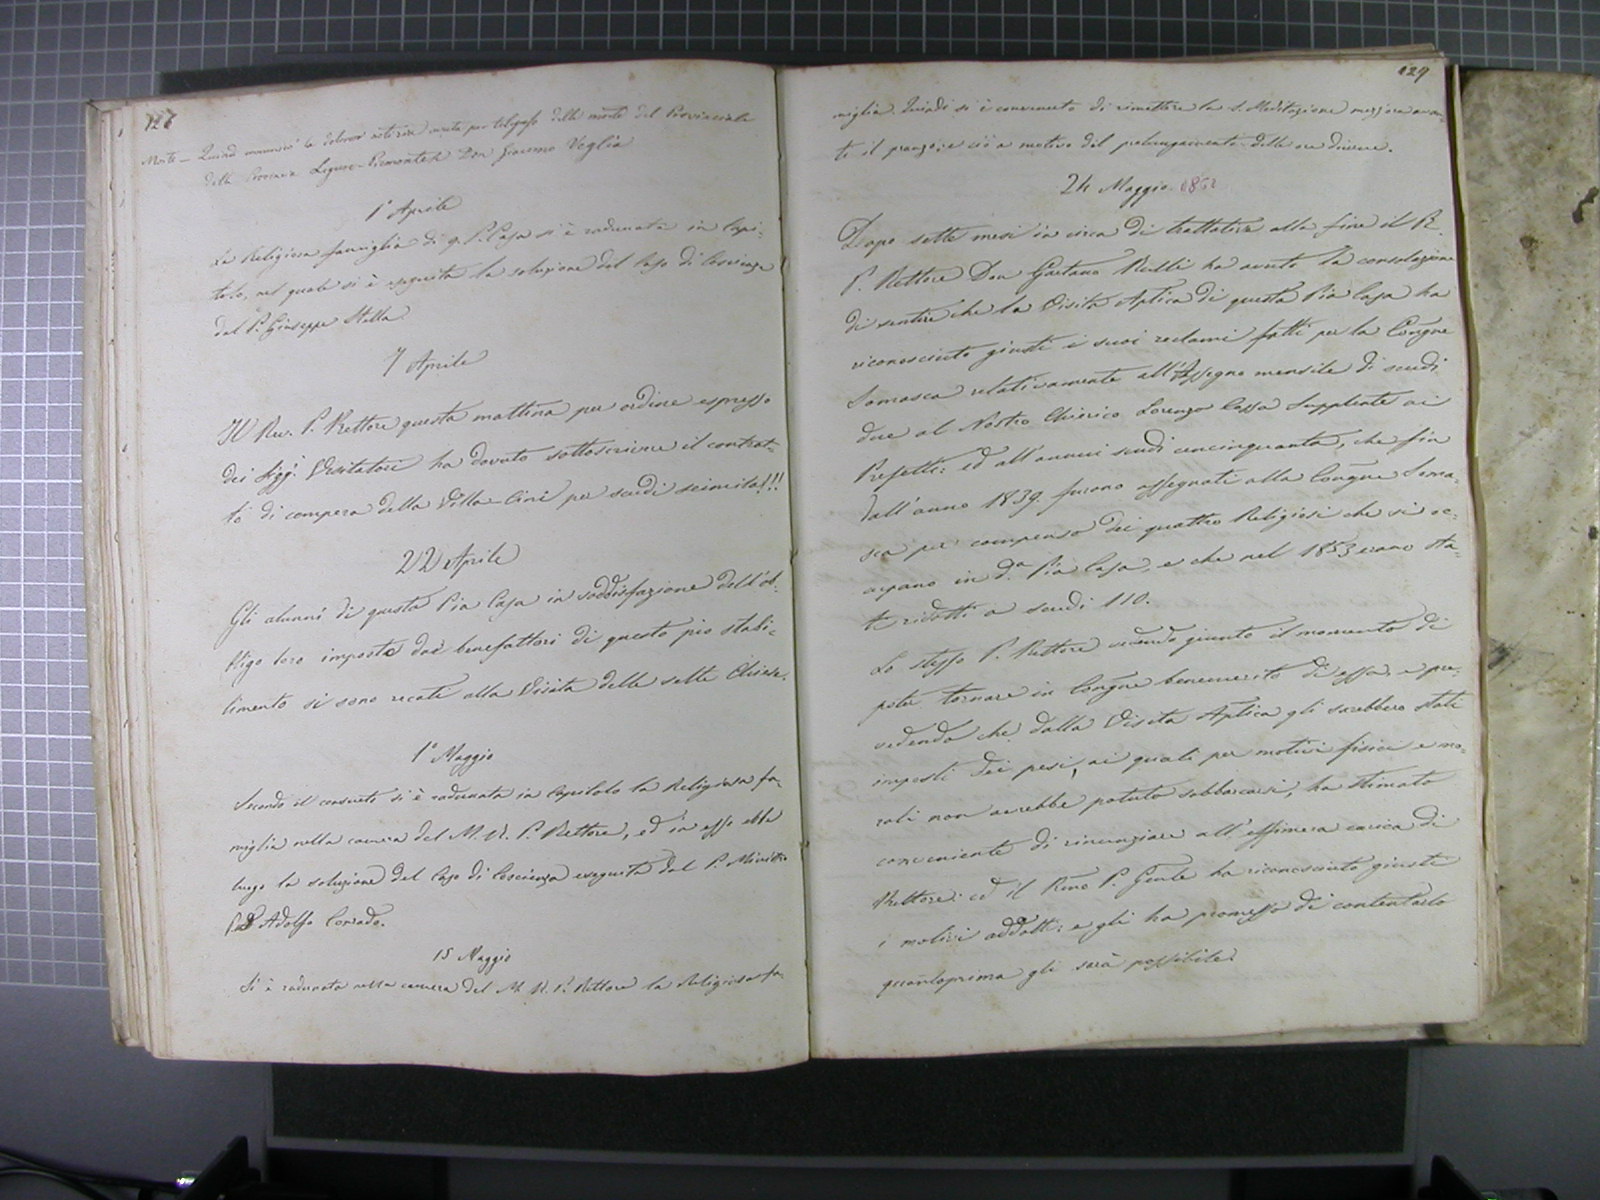 128
Morte — Quindi annunziò la dolorosa notizia avuta per telegrafo della morte del Provinciale
della Provincia Ligure-Piemontese Don Giacomo Veglia
1° Aprile
La Religiosa famiglia di q. P. Casa si è radunata in Capi-
tolo, nel quale si è eseguita la soluzione del Caso di Coscienza
dal P. Giuseppe Stella
7 Aprile
Il Rev. P. Rettore questa mattina per ordine espresso
dei Sigg.i Visitatori ha dovuto sottoscrivere il contrat-
to di compera della Villa-Cini per scudi seimila!!!
22 Aprile
Gli alunni di questa Pia Casa in soddisfazione dell'ob-
bligo loro imposto dai benefattori di questo pio stabi-
limento si sono recati alla Visita delle sette Chiese.
1° Maggio
Secondo il consueto si è radunata in Capitolo la Religiosa fa-
miglia nella camera del M. R. P. Rettore, ed in esso ebbe
luogo la soluzione del Caso di Coscienza eseguita dal P. Ministro
Adolfo Conrado.
15 Maggio
Si è radunata nella camera del M. R. P. Rettore la Religiosa fa-
129
miglia. Quindi si è convenuto di rimettere la S. Meditazione mezz'ora avan-
ti il pranzo; e ciò a motivo del prolungamento delle ore diurne.
24 Maggio. 1862
Dopo sette mesi in circa di trattative alla fine il R.
P. Rettore Don Gaetano Rulli ha avuto la consolazione
di sentire che la Visita Aplica di questa Pia Casa ha
riconosciuto giusti i suoi reclami fatti per la Congne
Somasca relativamente all'Assegno mensile di scudi
due al Nostro Chierico Lorenzo Cossa Supplente ai
Prefetti: ed all'annui scudi cencinquanta, che fin
dall'anno 1839 furono assegnati alla Congne Soma-
sca per compenso dei quattro Religiosi che si oc-
cupano in d.a Pia Casa, e che nel 1853 erano sta-
ti ridotti a scudi 110.
Lo stesso P. Rettore vedendo giunto il momento di
poter tornare in Congne benemerito di essa, e pre-
vedendo che dalla Visita Aplica gli sarebbero stati
imposti dei pesi, ai quali per motivi fisici e mo-
rali non avrebbe potuto sobbarcarsi, ha stimato
conveniente di rinunziare all'effimera carica di
Rettore: ed il Rmo P. Gnle ha riconosciuto giusti
i motivi addotti: e gli ha promesso di contentarlo
quantoprima gli sarà possibile.